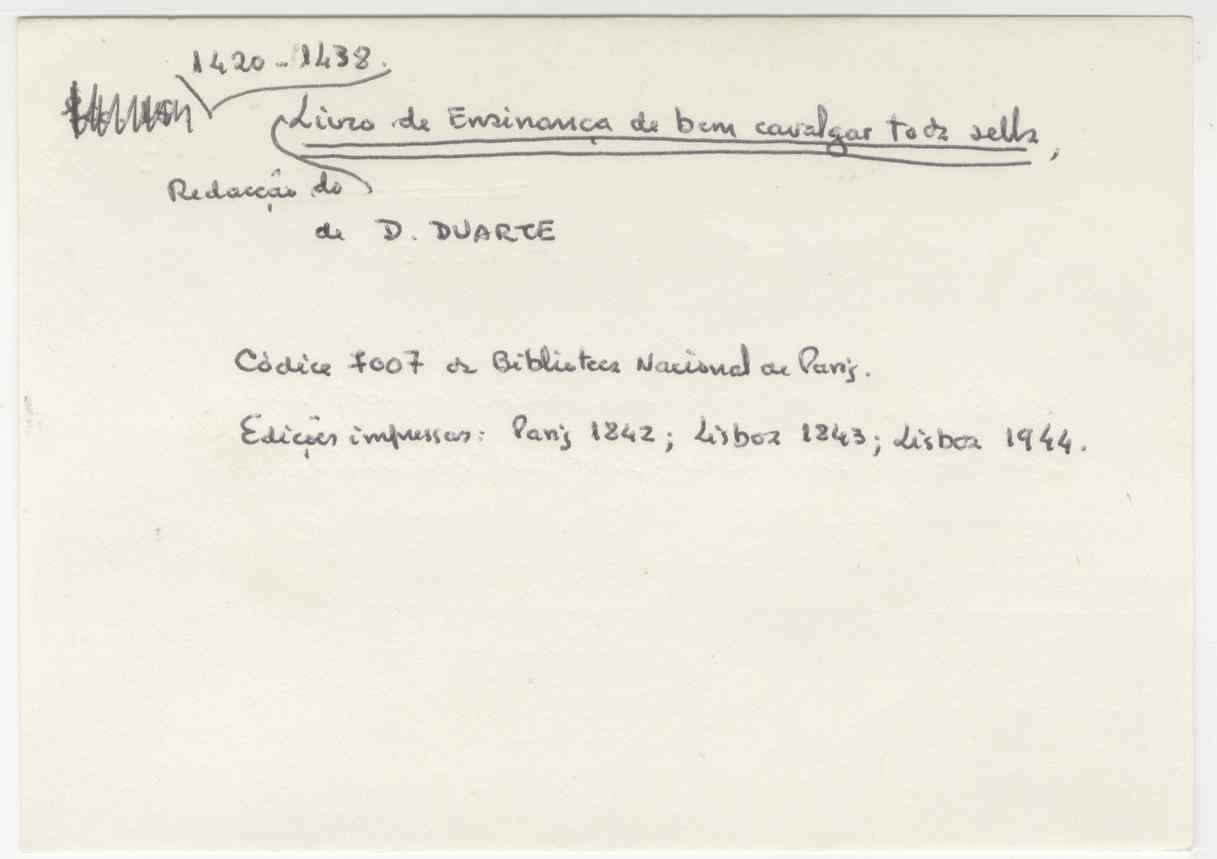 1420-1438.
Livro de Ensinança de bem cavalgar toda sella,
Redacção do
de D. DUARTE
Códice 7007 da Biblioteca Nacional de Paris.
Edições impressas: Paris 1842; Lisboa 1843; Lisboa 1944.